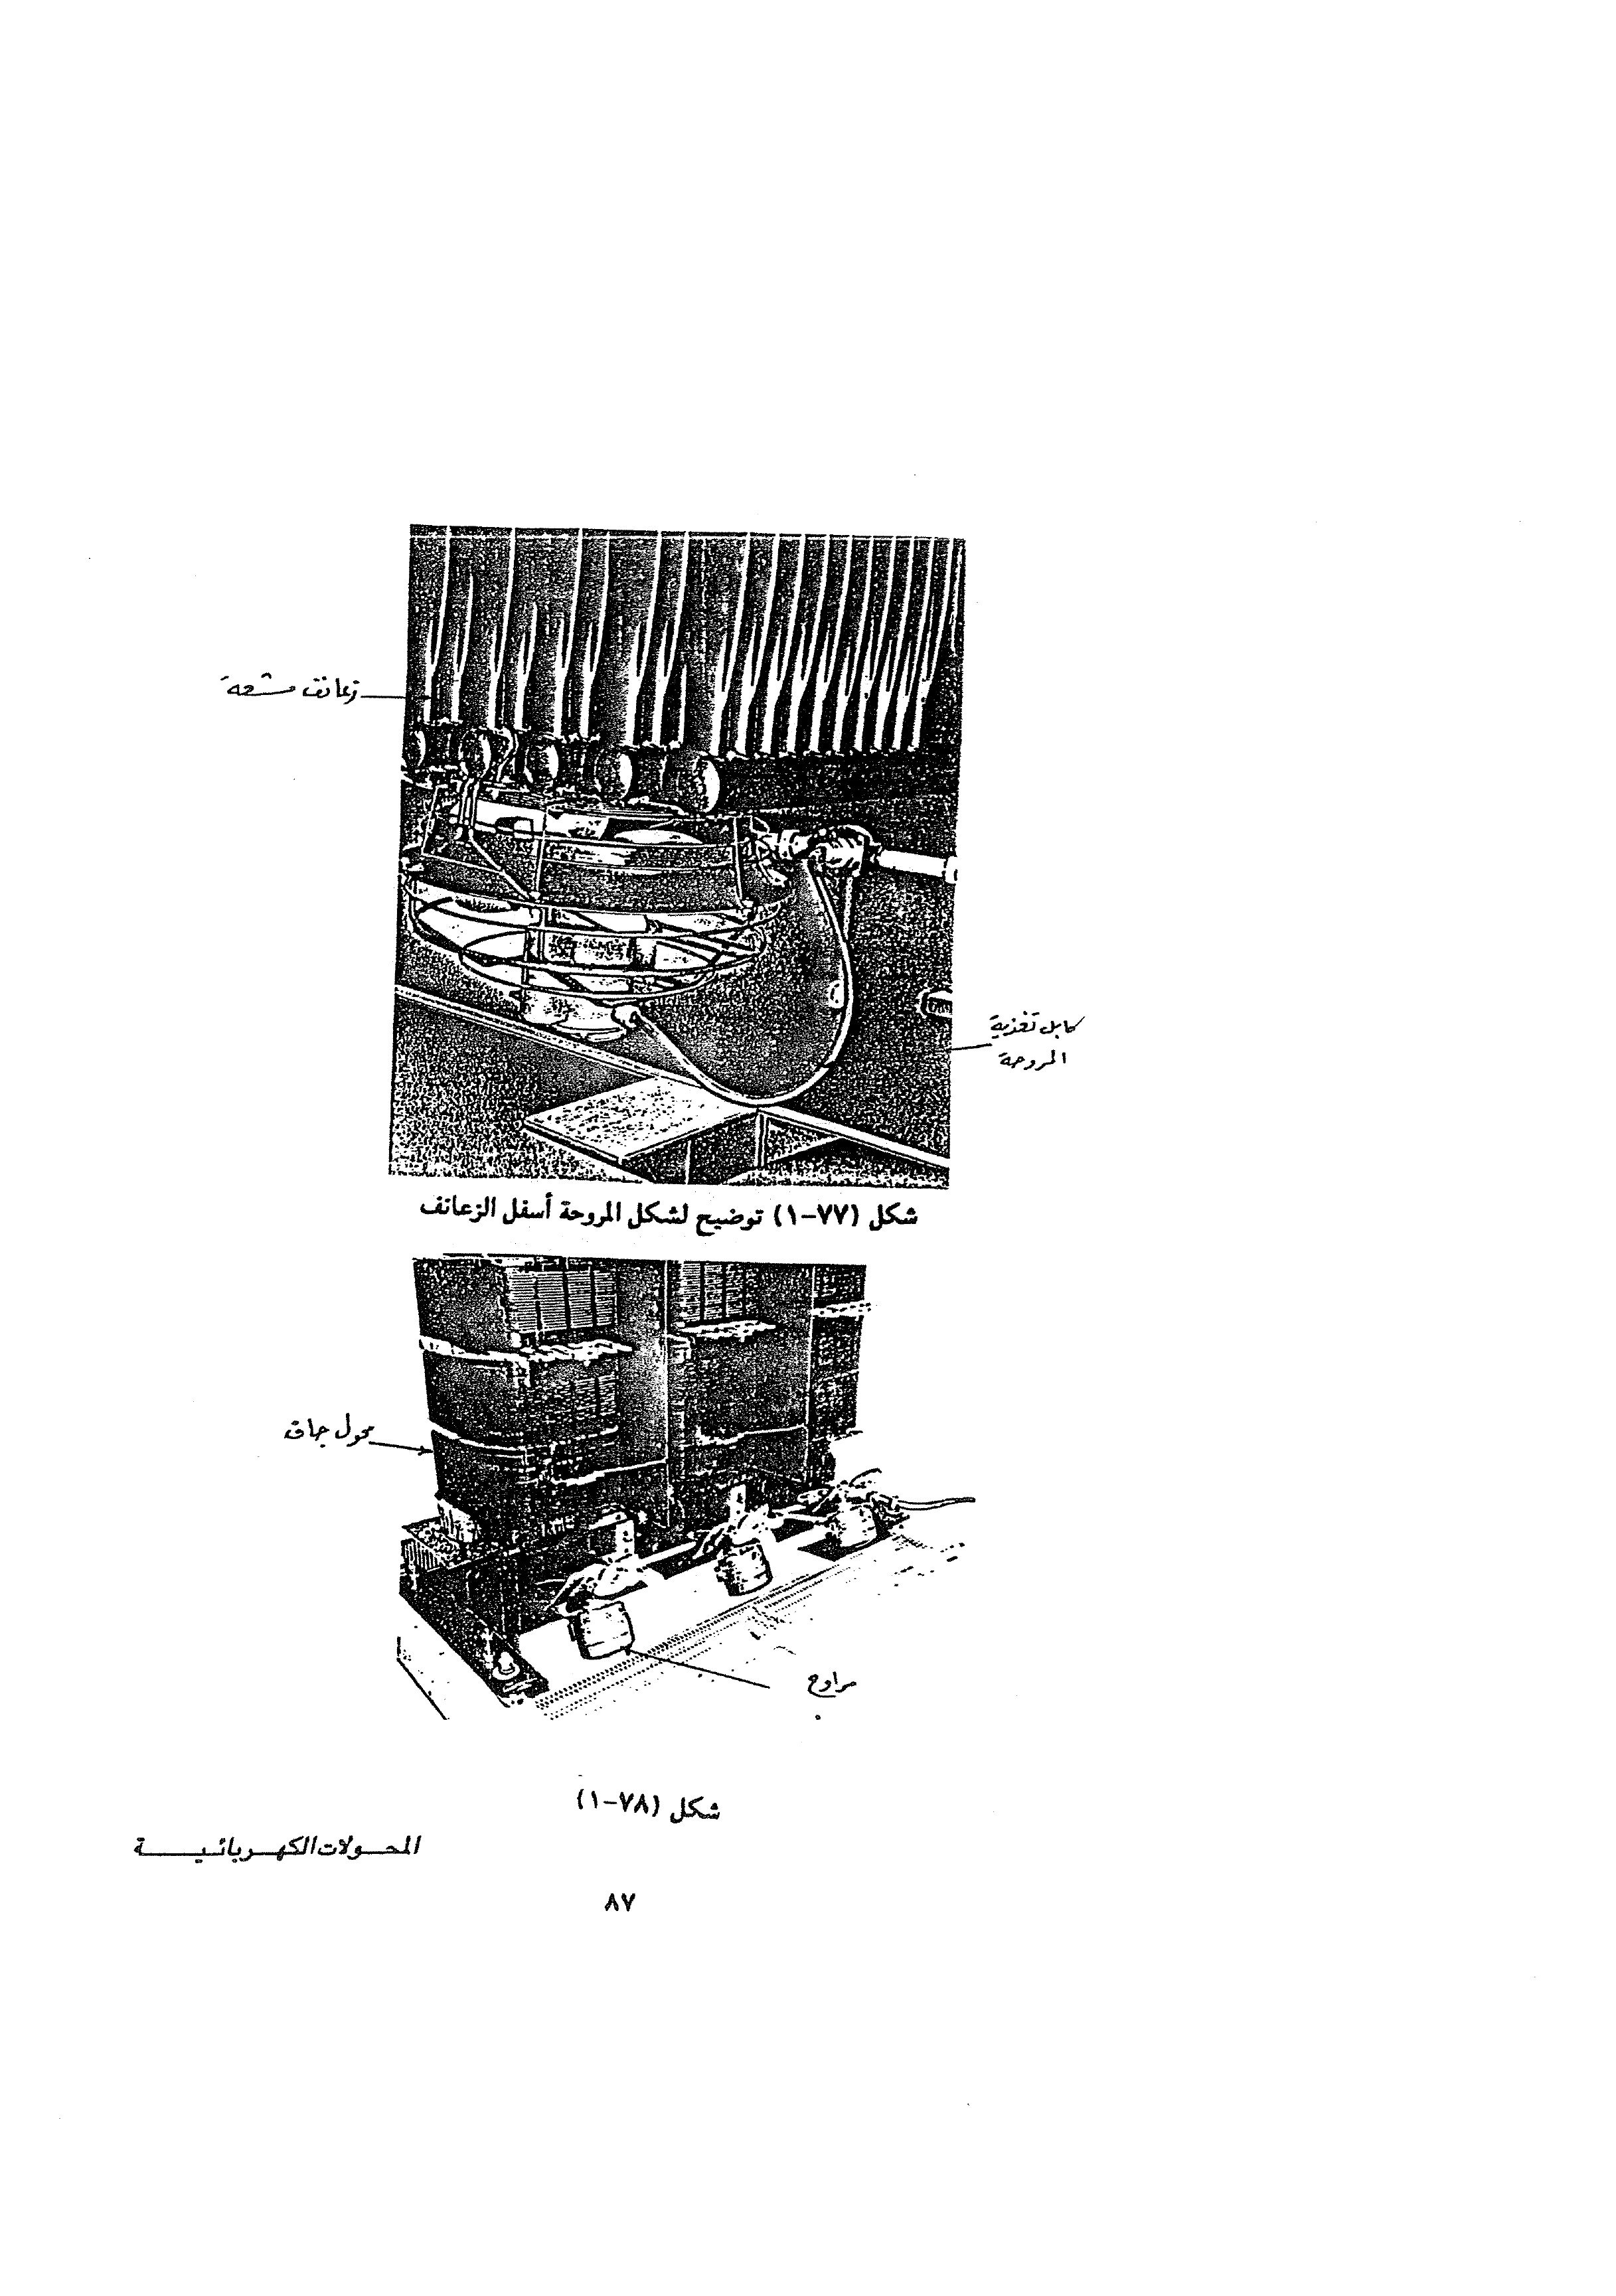 زعانف مشعة
كابل تغذية
المروحة
شكل (٧٧-١) توضيح لشكل المروحة أسفل الزعانف
محول جاف
مراوح
شكل (٧٨-١)
المحولات الكهربائية
٨٧